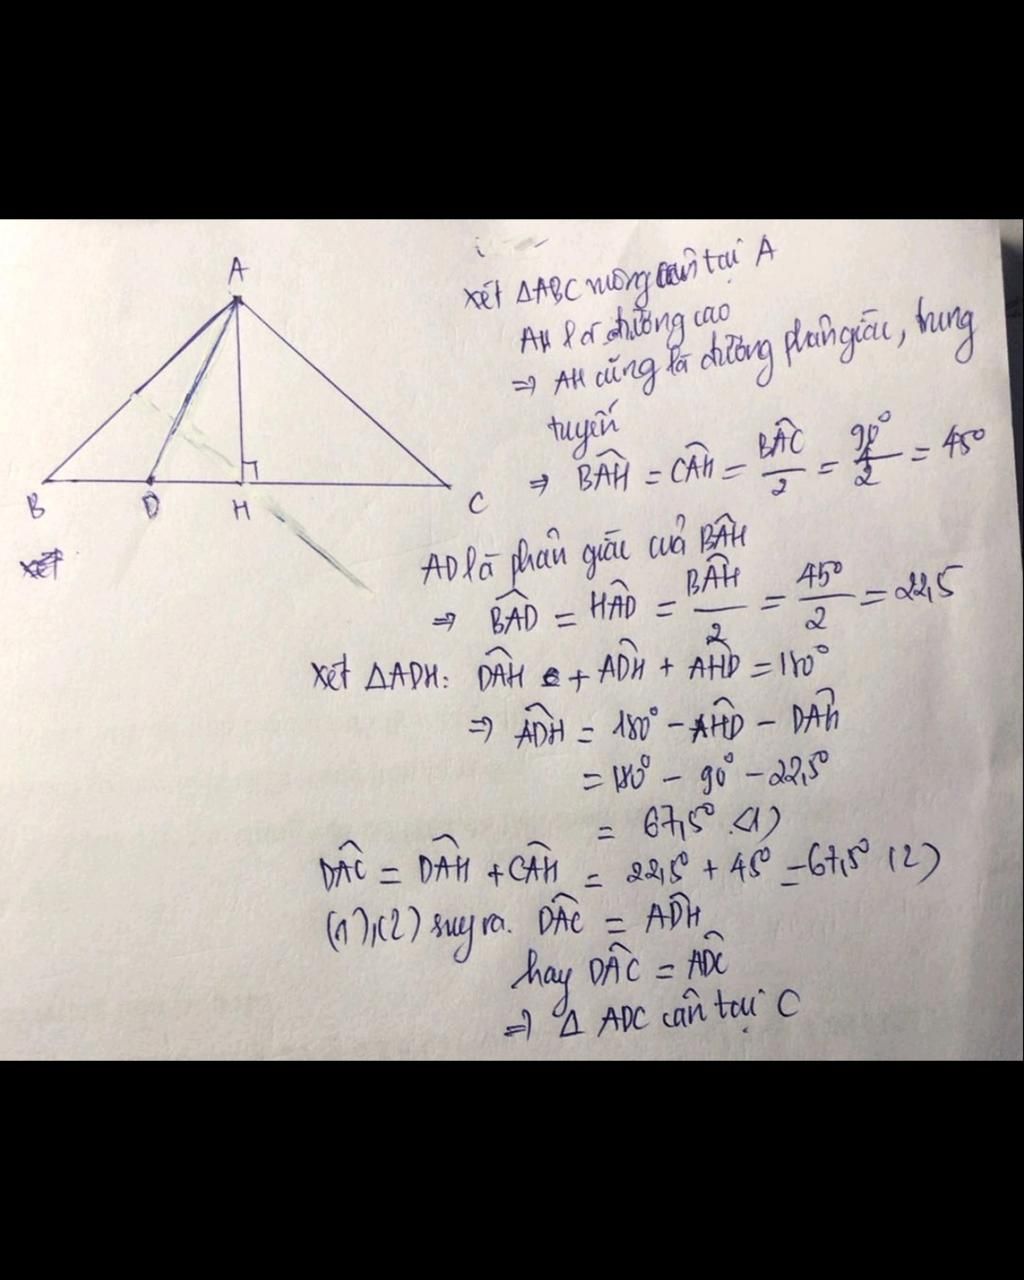 A
B
D
H
C
Xét ΔABC vuông cân tại A
AH là đường cao
⇒ AH cũng là đường phân giác, trung
tuyến
⇒ BÂH = CÂH = BÂC/2 = 90°/2 = 45°
AD là phân giác của BÂH
⇒ BÂD = HÂD = BÂH/2 = 45°/2 = 22,5
Xét ΔADH: DÂH + AD̂H + AĤD = 180°
⇒ AD̂H = 180° - AĤD - DÂH
= 180° - 90° - 22,5°
= 67,5° (1)
DÂC = DÂH + CÂH = 22,5° + 45° = 67,5° (2)
(1),(2) suy ra. DÂC = AD̂H
hay DÂC = AD̂C
⇒ Δ ADC cân tại C